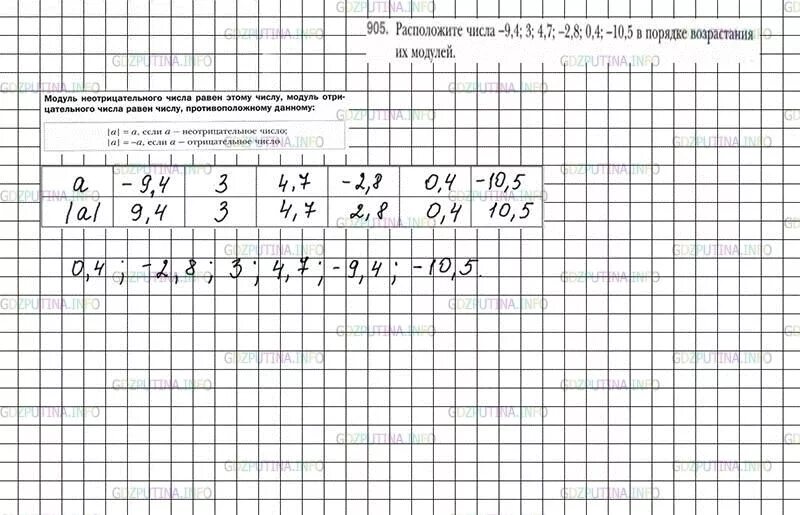 905. Расположите числа –9,4; 3; 4,7; –2,8; 0,4; –10,5 в порядке возрастания
их модулей.
Модуль неотрицательного числа равен этому числу, модуль отри-
цательного числа равен числу, противоположному данному:
|a| = a, если a – неотрицательное число;
|a| = –a, если a – отрицательное число
a -9,4 3 4,7 -2,8 0,4 -10,5
|a| 9,4 3 4,7 2,8 0,4 10,5
0,4 ; -2,8 ; 3 ; 4,7 ; -9,4 ; -10,5.
GDZPUTINA.INFO